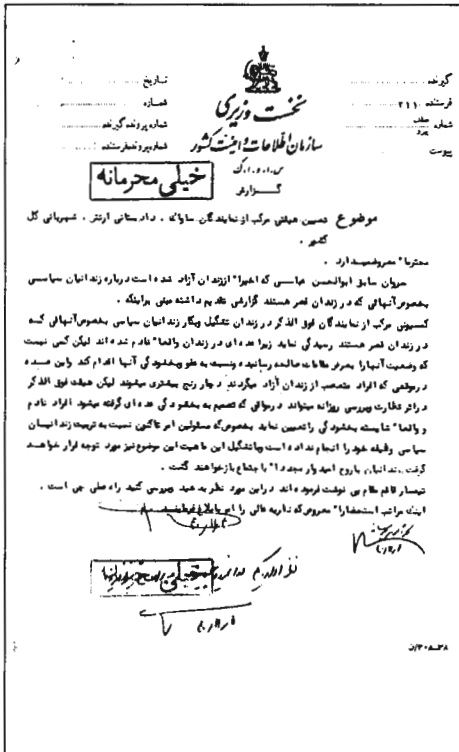 نخست وزیری
سازمان اطلاعات و امنیت کشور
س.ا.و.ا.ک
گزارش
خیلی محرمانه
گیرنده
فرستنده ۲۱۱
شماره
پیوست
تاریخ
شماره
شماره پرونده گیرنده
شماره پرونده فرستنده
موضوع تعیین هیئتی مرکب از نمایندگان ساواک ، دادستانی ارتش ، شهربانی کل
کشور .
محترما" معروضمیدارد .
سروان سابق ابوالحسن عباسی که اخیرا" از زندان آزاد شده است درباره زندانیان سیاسی
بخصوص آنهائی که در زندان قصر هستند گزارشی تقدیم داشته مبنی براینکه .
کمیسیونی مرکب از نمایندگان فوق الذکر در زندان تشکیل وبکار زندانیان سیاسی بخصوص آنهائی که
در زندان قصر هستند رسیدگی نماید زیرا عده ای در زندان واقعا" نادم شده اند لیکن کسی نیست
که وضعیت آنها را بعرض مقامات صالحه رسانیده ونسبت به عفو وبخشودگی آنها اقدام کند واین عده
درموقعی که افراد متعصب از زندان آزاد میگردند دچار رنج بیشتری میشوند لیکن هیئت فوق الذکر
در اثر نظارت وبررسی روزانه میتواند درمواقعی که تصمیم به بخشودگی عده ای گرفته میشود افراد نادم
و واقعا" شایسته بخشودگی را تعیین نماید بخصوص که مسئولین امر تاکنون نسبت به تربیت زندانیان
سیاسی وظیفه خود را انجام نداده است وباتشکیل این هیئت این موضوع نیز مورد توجه قرار خواهد
گرفت زندانیان با روح امیدوار مجددا" با جتماع باز خواهند گشت .
تیمسار قائم مقام پی نوشت فرموده اند دراین مورد نظر بدهید وبررسی کنید راه عملی چی است .
اینک مراتب استحضارا" معروض که نظریه عالی را
خیلی محرمانه